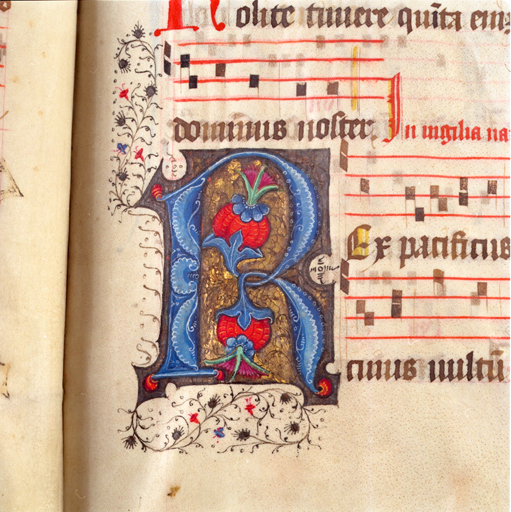 Nolite timere quīta enī
dominus noster. In uigilia na
Rex pacificus
cuius uultū